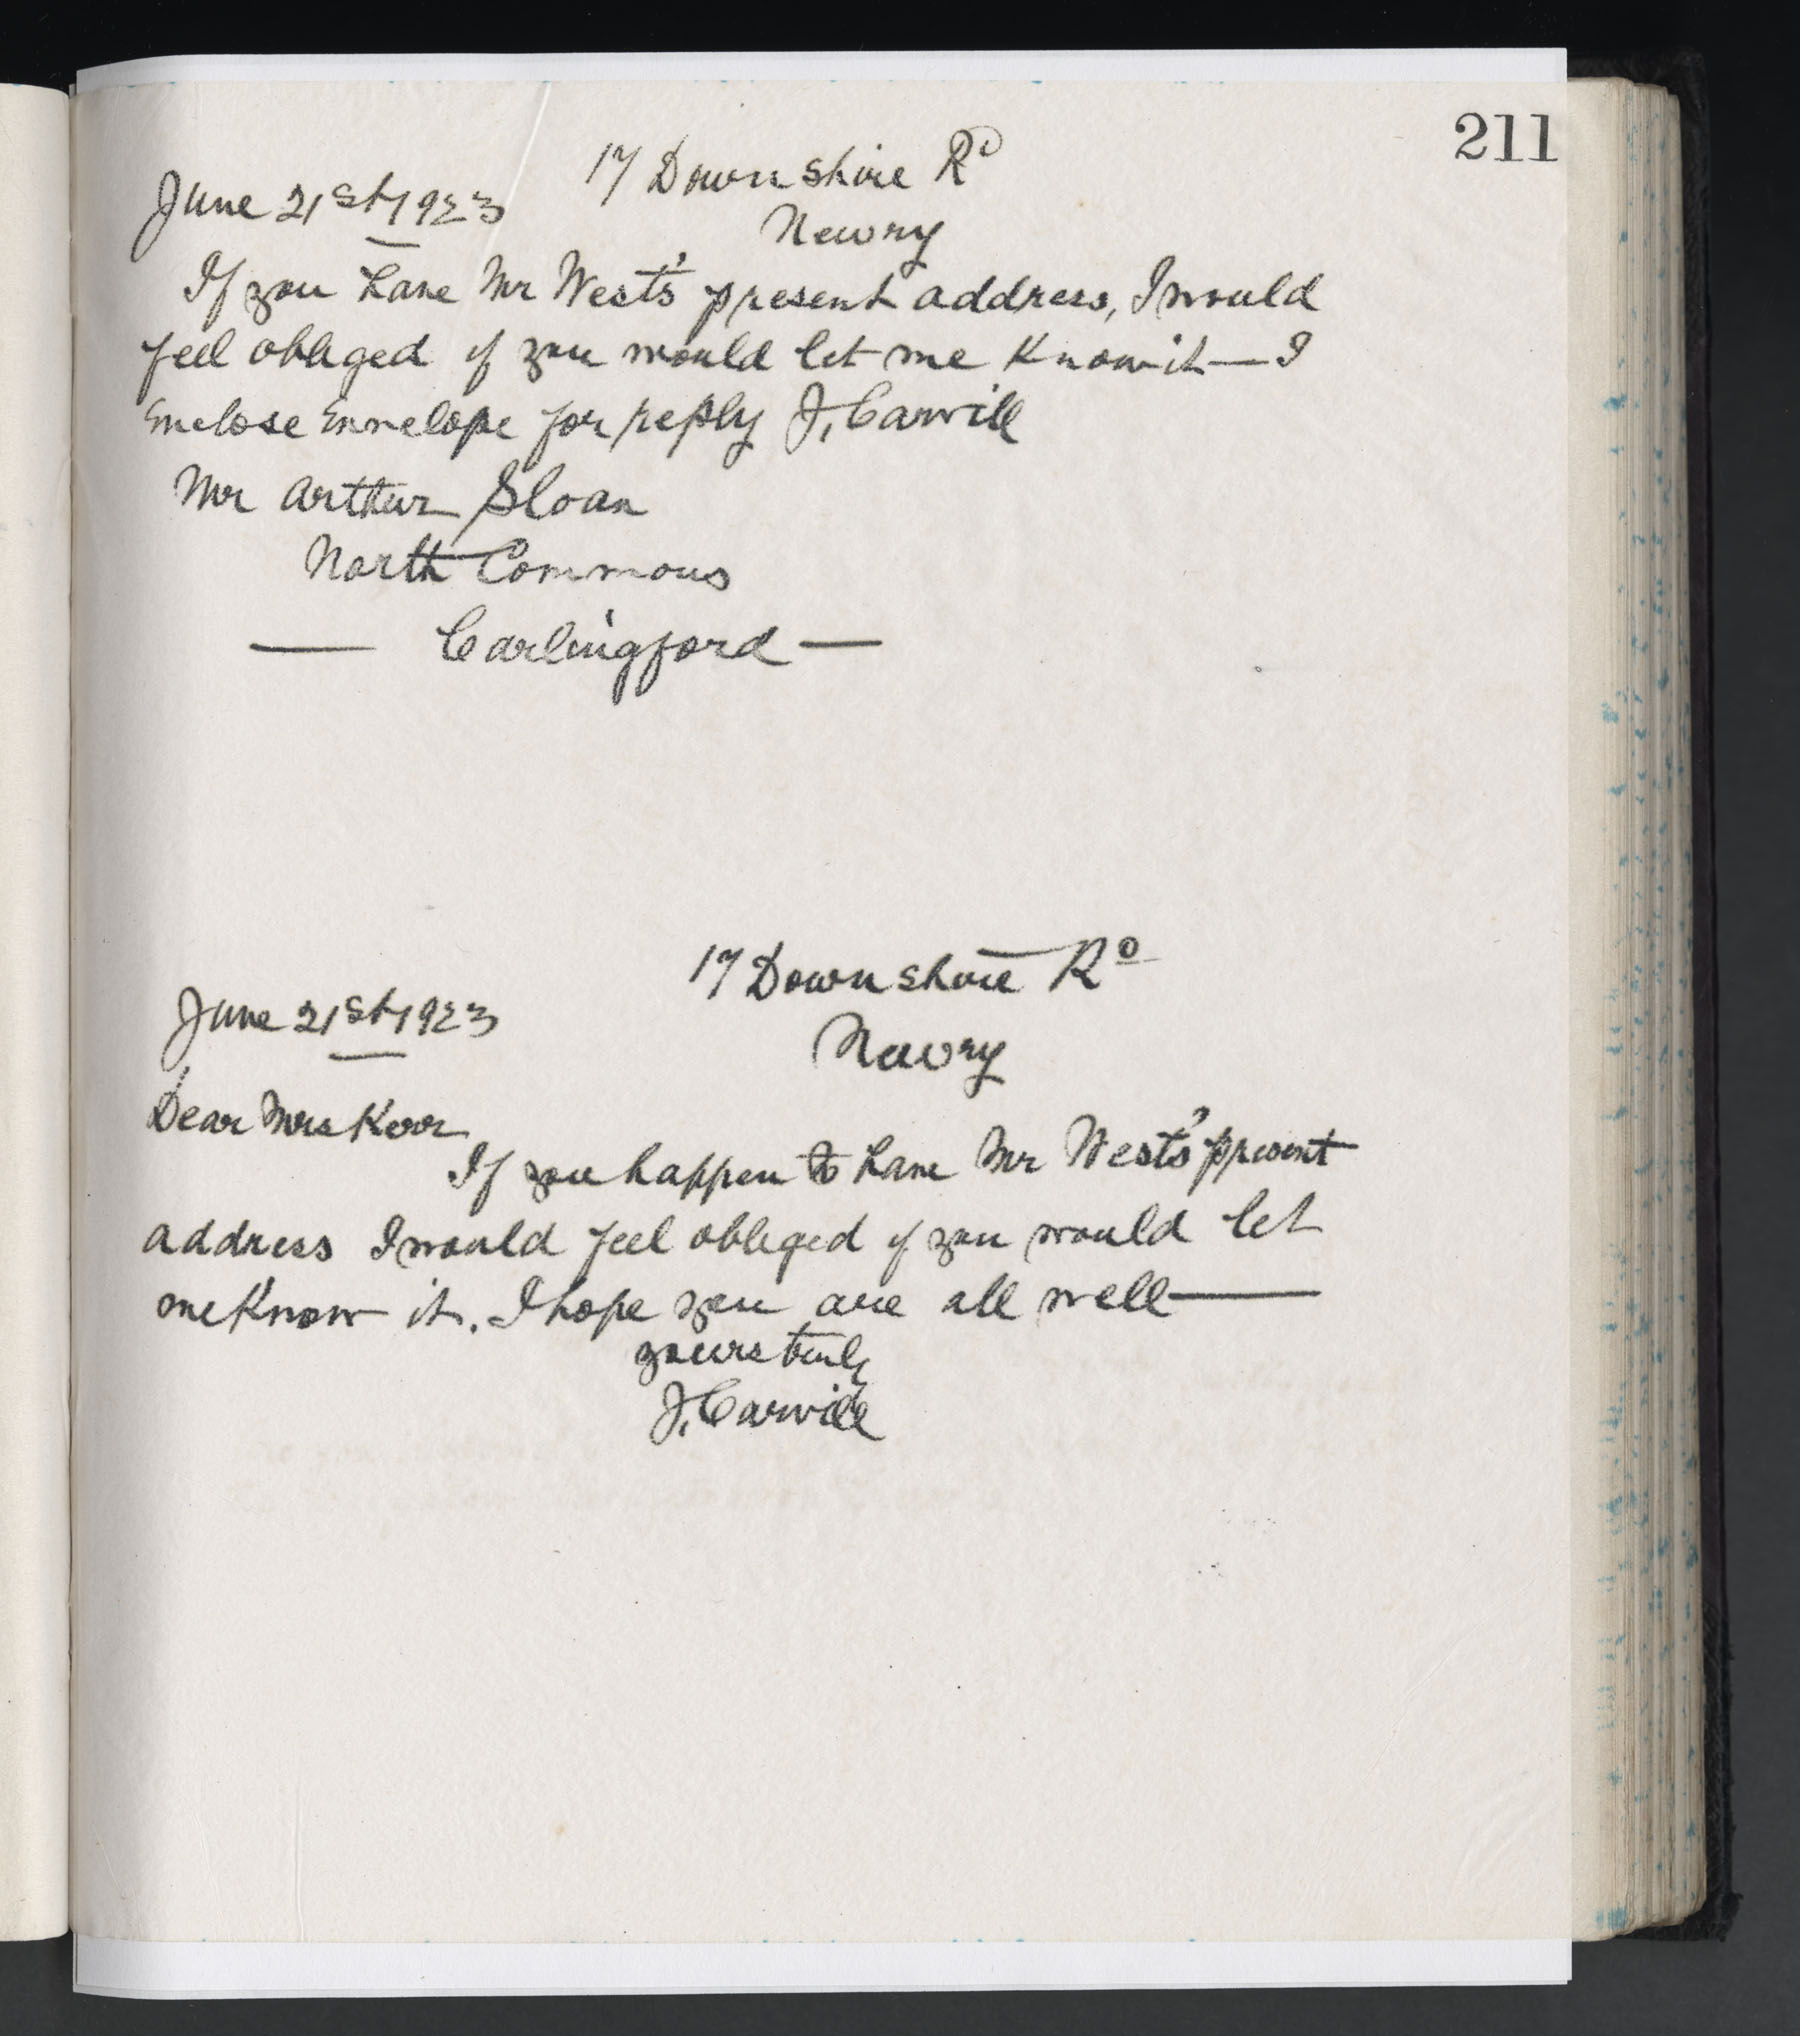 211
17 Downshire Rd
June 21st 1923
Newry
If you have Mr West's present address, I would
feel obliged if you would let me know it — I
Enclose Envelope for reply J. Carvill
Mr Arthur Sloan
North Commons
— Carlingford —
17 Downshire Rd
June 21st 1923
Newry
Dear Mrs Kerr
If you happen to have Mr West's present
address I would feel obliged if you would let
me know it. I hope you are all well —
yours truly
J. Carvill